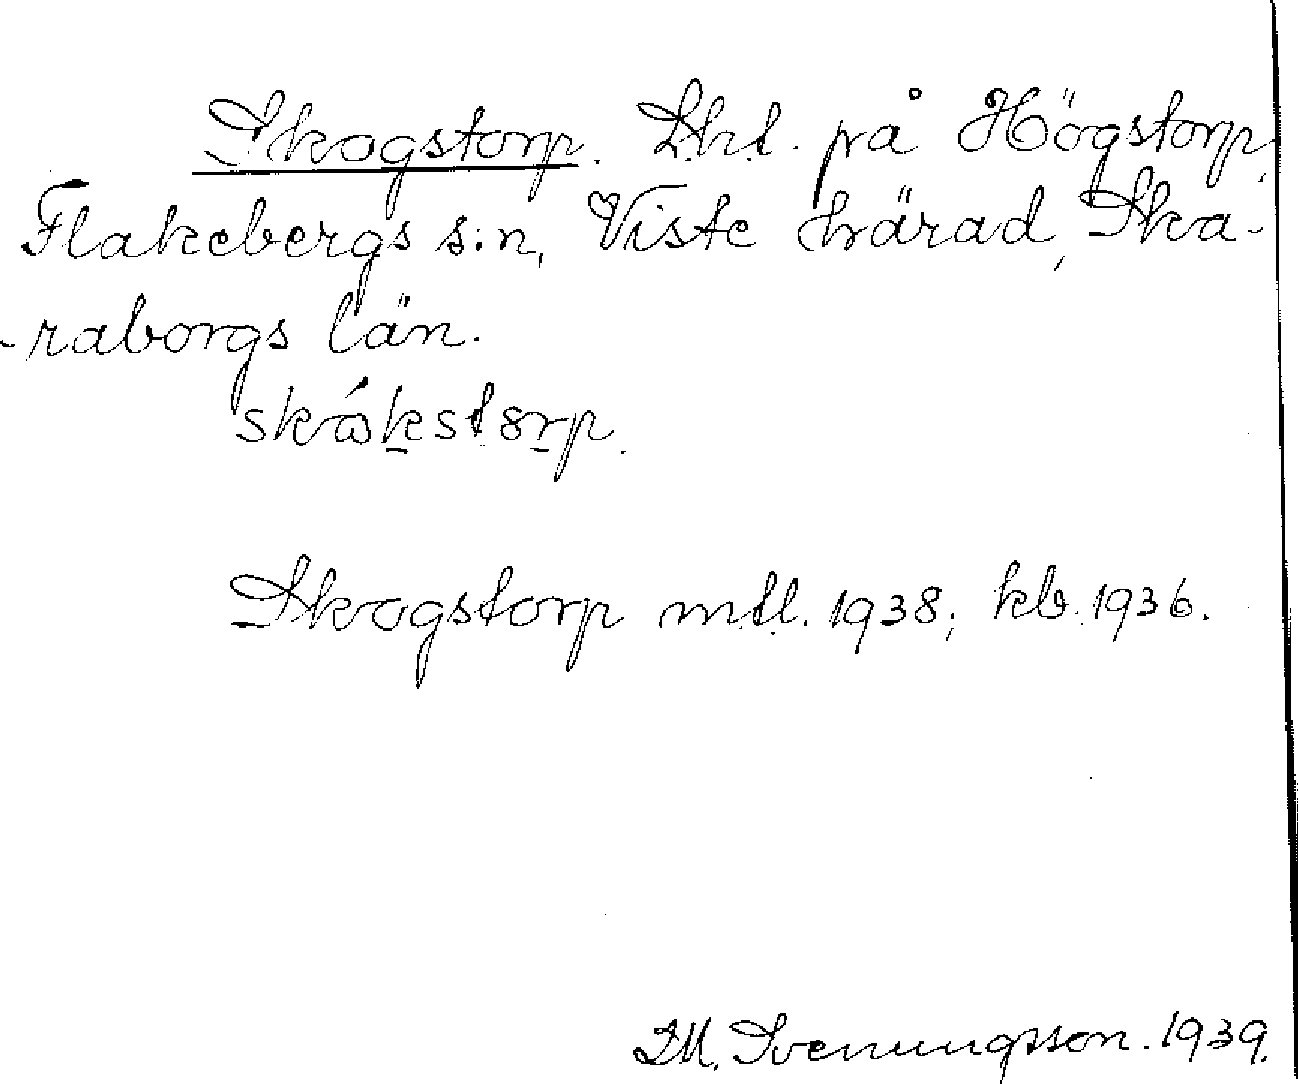 Skogstorp. Lht. på Högstorp,
Flakebergs s:n, Viste härad, Ska-
-raborgs län.
skákstorp.
Skogstorp mtl. 1938; kb. 1936.
M. Svenungsson. 1939.